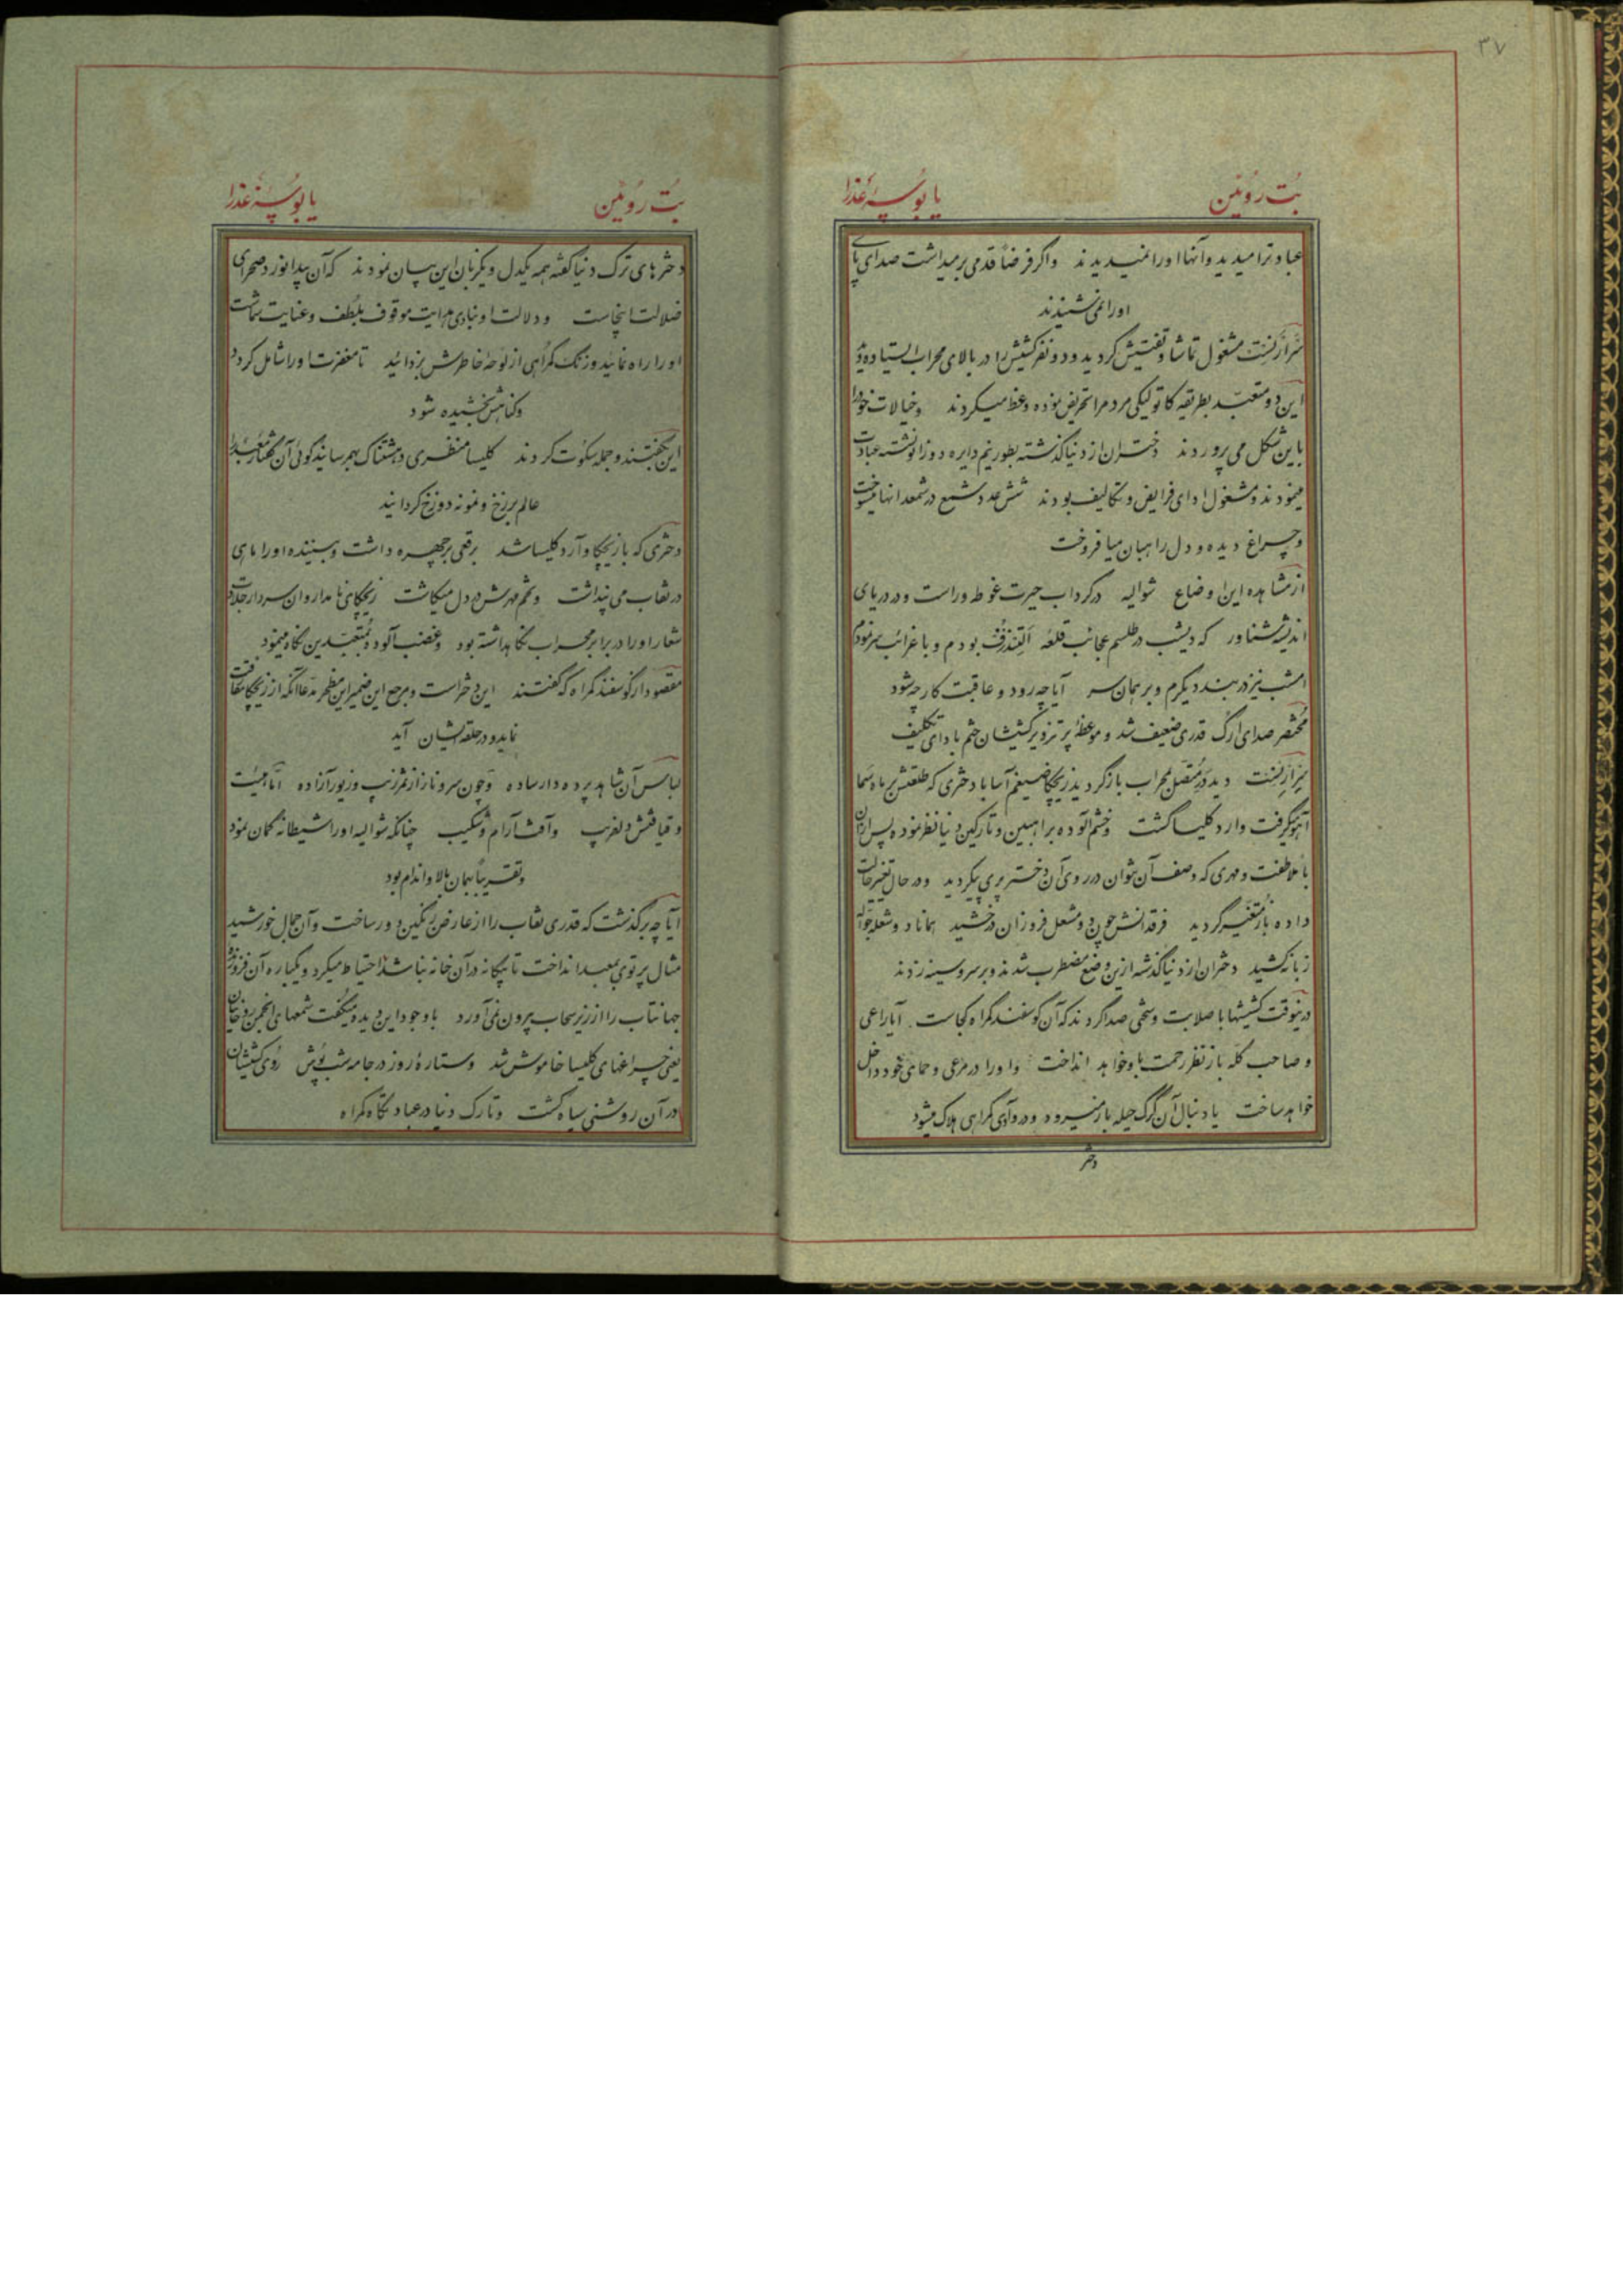 ۳۷
بُت رُوئین یا بُوسهٔ عذرا
عباد ترا میدید و آنها او را نمیدیدند واگر فرضاً قدمی برمیداشت صدای پای
او را نمی‌شنیدند
مشغول تماشا و تفتیش گردید و دو نفر کشیش را در بالای محراب ایستاده
این دو متعبّد بطریقه کاتولیکی مردم را تحریض نموده وعظ میکردند وخیالات خود را
باین شکل می پروردند دختران از دنیا گذشته بطور نیم دایره دو زانو نشسته عبادت
مینمودند و مشغول ادای فرایض و تکالیف بودند شش عدد شمع در شمعدانها میسوخت
و چراغ دیده و دل راهبان میافروخت
از مشاهده این اوضاع شوالیه در گرداب حیرت غوطه وراست و در دریای
اندیشه شناور که دیشب در طلسم عجائب قلعه بودم و با غرائب
امشب نیز در بند دیگرم و بر همان سر آیا چه رود و عاقبت کار چه شود
مختصر صدای ارگ قدری ضعیف شد و موعظهٔ پر تزویر کشیشان ختم بادای تکلیف
دید در متصل محراب باز گردید زیچکا ضیغم آسا با دختری که طلعتش بر ماه سما
آهو گرفت وارد کلیسا گشت و خشم آلوده براهبین و تارکین دنیا نظر نموده پس از آن
با ملاطفت و مهری که وصف آن نتوان در روی آن دختر پری پیکر دید و در حال تغییر حالت
داده باز متغیّر گردید فرقدانش چون دو مشعل فروزان درخشید همانا دو شعله جوّاله
زبانه کشید دختران از دنیا گذشته ازین وضع مضطرب شدند و بر سر و سینه زدند
درینوقت کشیشها با صلابت و سختی صدا کردند که آن گوسفند گمراه کجاست آیا راعی
و صاحب گله باز نظر رحمت باو خواهد انداخت و او را در مرعی و حمای خود داخل
خواهد ساخت یا دنبال آن گرگ حیله باز میرود و در وادی گمراهی هلاک میشود
دختر
بُت رُوئین یا بُوسهٔ عذرا
دخترهای ترک دنیا گفته همه یکدل و یکزبان این بیان نمودند که آن بیدا نورد صحرای
ضلالت اینجاست و دلالت او بنادی هدایت موقوف بلطف و عنایت شماست
او را راه نمائید و زنگ گمراهی از لوحهٔ خاطرش بزدائید تا مغفرت او را شامل گردد
و گناهش بخشیده شود
این بگفتند و جمله سکوت کردند کلیسا منظری دهشتناک بهم رسانید گوئی آن گفتار معبد را
عالم برزخ و نمونه دوزخ گردانید
دختری که با زیچکا وارد کلیسا شد برقعی بر چهره داشت و بیننده او را ماهی
در نقاب می پنداشت و تخم مهرش در دل میکاشت زیچکای نامدار و آن سردار جلادت
شعار او را در برابر محراب نگاهداشته بود و غضب آلوده بمتعبّدین نگاه مینمود
مقصود از گوسفند گمراه که گفتند این دختر است و مرجع این ضمیر این مظهر مدّعا آنکه از زیچکا مفارقت
نماید و در حلقه ایشان آید
لباس آن شاهد پرده دار ساده و چون سرو ناز از ثمر زیب و زیور آزاده امّا هیئت
و قیافتش دلفریب و آفت آرام و شکیب چنانکه شوالیه او را شیطانه گمان نمود
و تقریباً بهمان بالا و اندام بود
آیا چه برگذشت که قدری نقاب را از عارض رنگین دور ساخت و آن جمال خورشید
مثال پرتوی بمعبد انداخت تا بیگانه در آن خانه نباشد احتیاط میکرد و یکباره آن فروزندهٔ
جهانتاب را از زیر سحاب بیرون نمی آورد با وجود این دیده میگفت شمعهای انجمن روحانیان
یعنی چراغهای کلیسا خاموش شد و ستارهٔ روز در جامه شب پوش روی کشیشان
در آن روشنی سیاه گشت و تارک دنیا در عبادتگاه گمراه